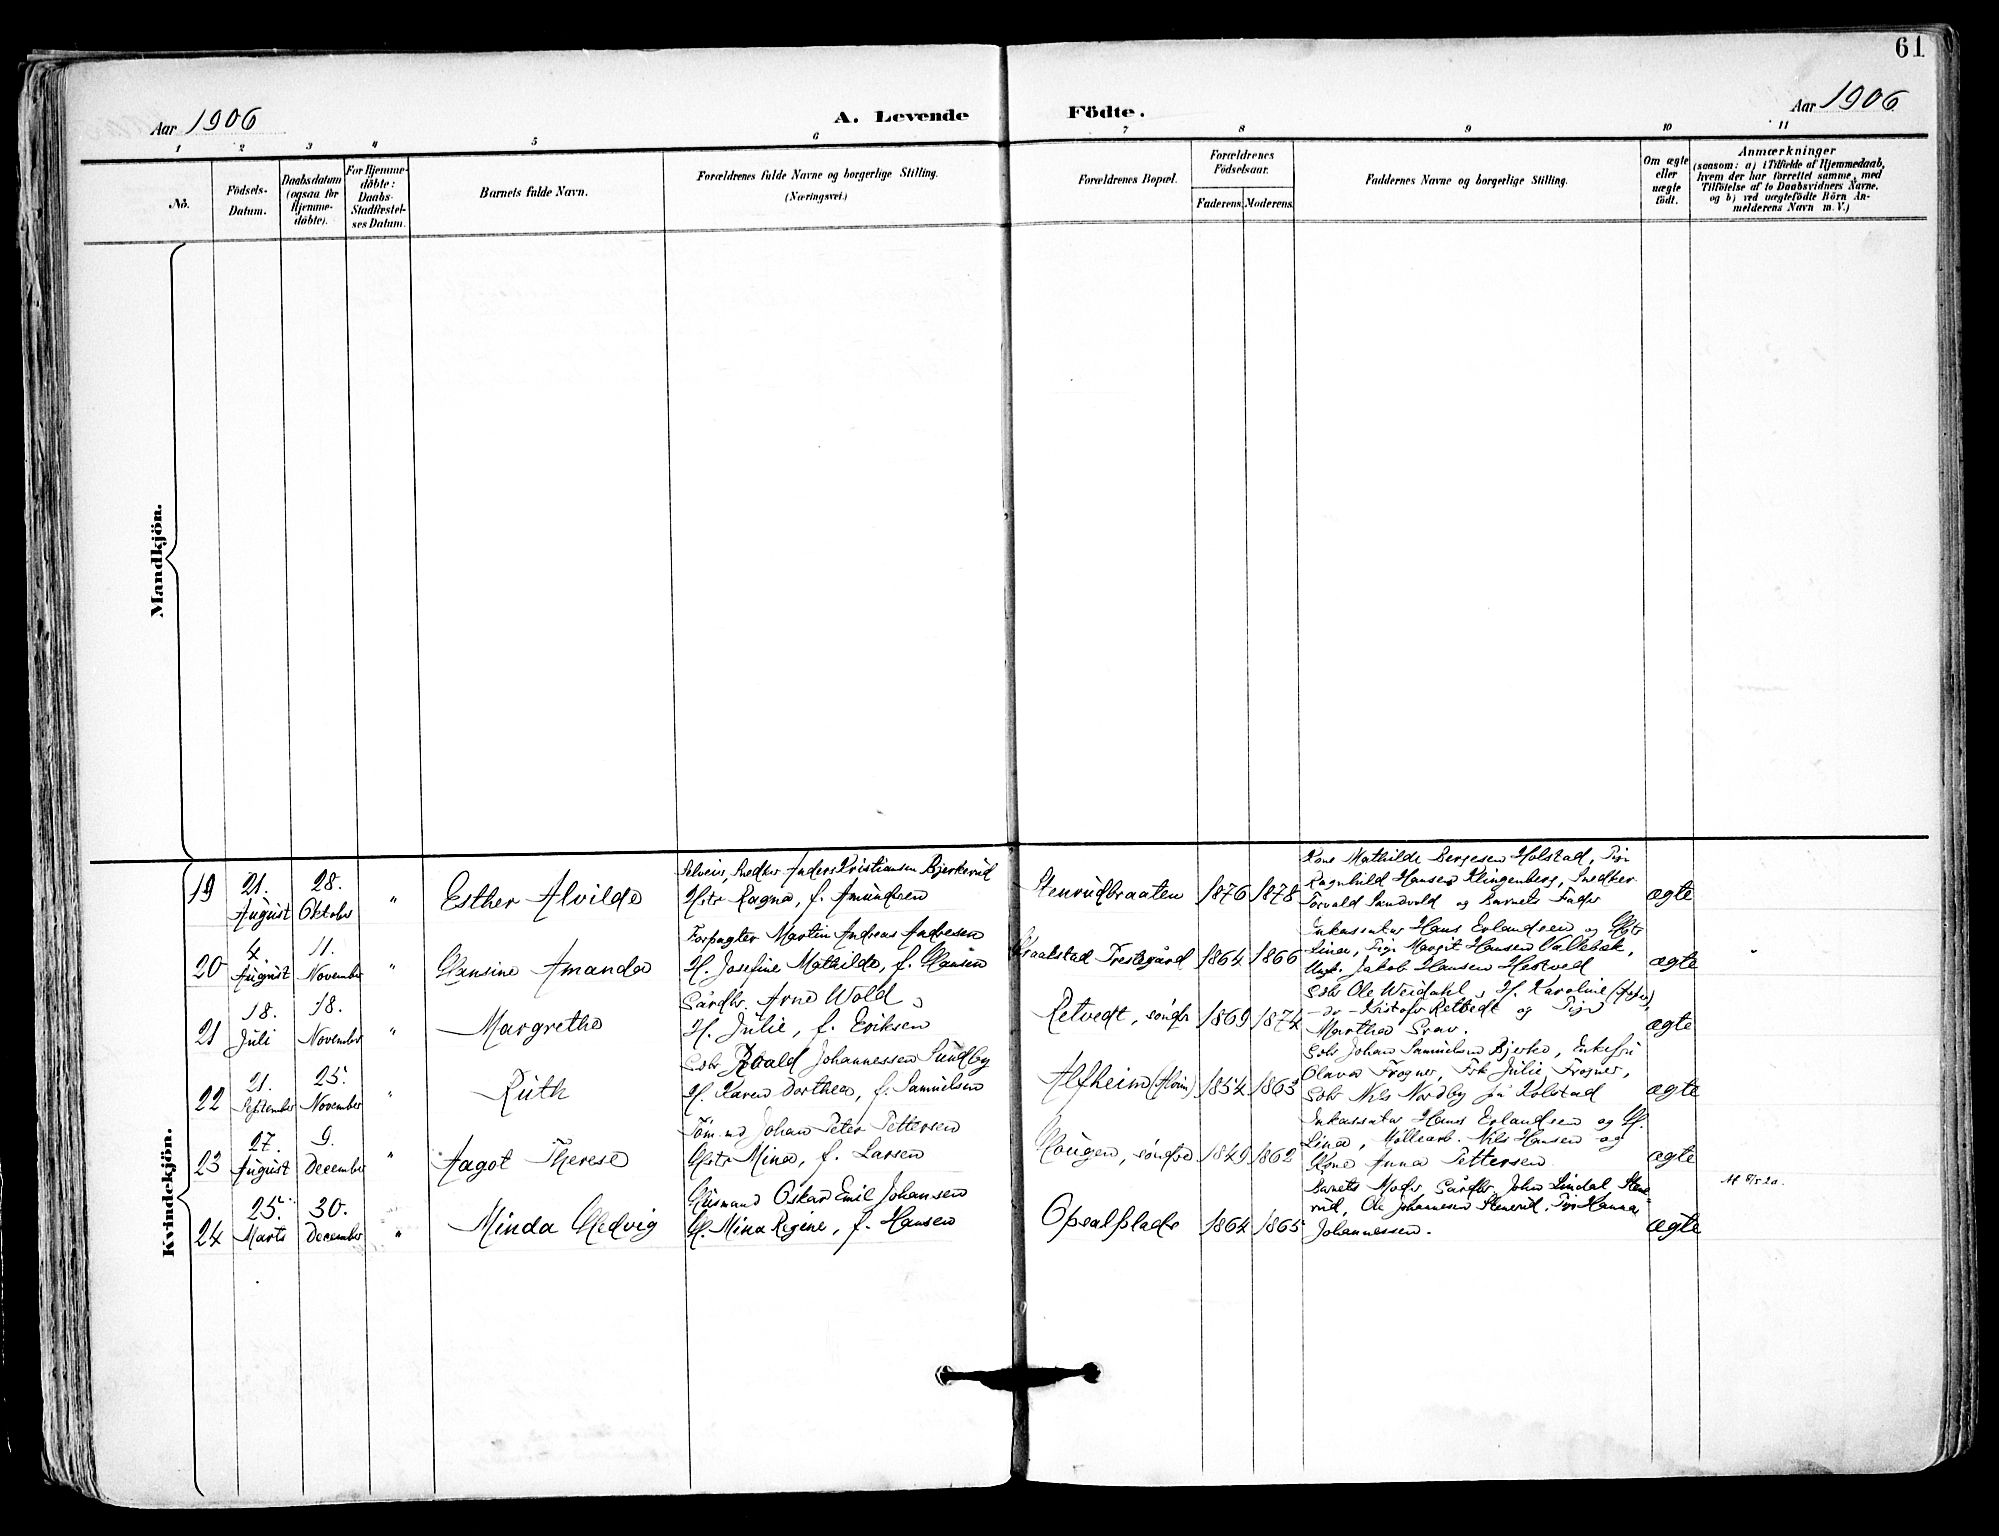 61
Aar 1906
A. Levende Födte.
Aar 1906
1 2 3 4 5 6 7 8 9 10 11
Nö.
Födsels-
Datum.
Daabsdatum
(ogsaa for
Hjemme-
döbte).
For Hjemme-
döbte:
Daabs-
Stadfæstel-
ses Datum.
Barnets fulde Navn.
Forældrenes fulde Navne og borgerlige Stilling.
(Næringsvei.)
Forældrenes Bopæl.
Forældrenes
Födselsaar.
Faderens. Moderens.
Faddernes Navne og borgerlige Stilling.
Om ægte
eller
uægte
födt.
Anmærkninger
(saasom: a) i Tilfælde af Hjemmedaab,
hvem der har forrettet samme, med
Tilföielse af to Daabsvidners Navne,
og b) ved uægtefödte Börn An-
melderens Navn m. V.)
Mandkjön.
Kvindekjön.
19
21.
August
28.
Oktober
"
Esther Alvilde
Selveier, Snedker Anders Kristiansen Bjerkerud
Hstr Ragna, f. Amundsen
Stenrudbraaten
1876 1878
Kone Mathilde Børgesen Holstad, Pige
Ragnhild Hansen Klingenberg, Snedker
Torvald Sandvold og Barnets Fader
ægte
20
4.
August
11.
November
"
Hansine Amanda
Forpagter Martin Andreas Andresen
H. Josefine Mathilde, f. Hansen
Kraakstad Prestegård
1864 1866
Inkassator Hans Erlandsen og Hstr
Lina, Pige Margit Hansen Vallebæk,
Ungk. Jakob Hansen Hestved
ægte
21
18.
Juli
18.
November
"
Margrethe
Gårdbr Arne Wold,
H. Julie, f. Eriksen
Retvedt, søndre
1869 1874
Gbr Ole Weidahl, H. Karoline
- dr - Kristofer Retvedt og Pige
Martha Grav.
ægte
22
21.
September
25.
November
"
Ruth
Gbr Roald Johannessen Sundby
H. Karen Dorthea, f. Samuelsen
Alfheim
1854 1863
Gbr Johan Samuelsen Bjerke, Enkefru
Olava Frogner, Frk Julie Frogner,
Gbr Nils Nordby på Kolstad
ægte
23
27.
August
9.
December
"
Aagot Therese
Tömmd Johan Peter Pettersen
Hstr Mina, f. Larsen
Haugen, søndre
1849 1862
Inkassator Hans Erlandsen og H.
Lina, Møllearb. Nils Hansen og
Kone Anna Pettersen
ægte
24
25.
Marts
30.
December
"
Minda Hedvig
Husmand Oskar Emil Johansen
H. Mina Regine, f. Hansen
Opsalplads
1864 1865
Barnets Moder, Gårdbr. John Lindal Sten-
rud, Ole Johannesen Stenrud, Pige Hanna
Johannessen.
ægte